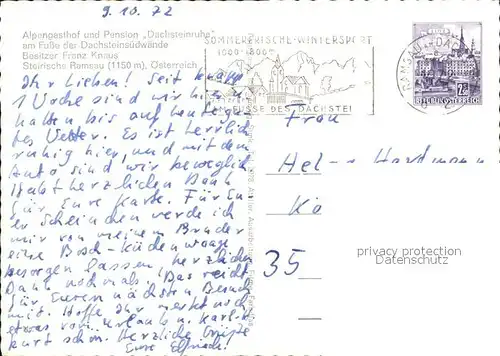 9.10.72
Alpengasthof und Pension „Dachsteinruhe"
am Fuße der Dachsteinsüdwände
Besitzer Franz Knaus
Steirische Ramsau (1150 m), Österreich
SOMMERFRISCHE-WINTERSPORT
AM FUSSE DES DACHSTEI
REPUBLIK ÖSTERREICH
Ihr Lieben! Seit knapp
1 Woche sind wir hier
hatten bis auf heute
Wetter. Es ist herrlich
ruhig hier, und mit dem
Auto sind wir beweglich
Habt herzlichen Dank
für Eure Karte. Für
Erscheinen werde ich
mir von meinem Bruder
eine Bosch-Küchenwaage
besorgen lassen, herzlichen
Dank nochmals! Das reicht
für Euren nächsten Besuch
mit. Hoffe Ihr merkt noch
etwas vom Urlaub u.
schon. Herzliche Grüße
Eure
Frau
Hel - Hartmann
Kö
35
privacy protection
Datenschutz